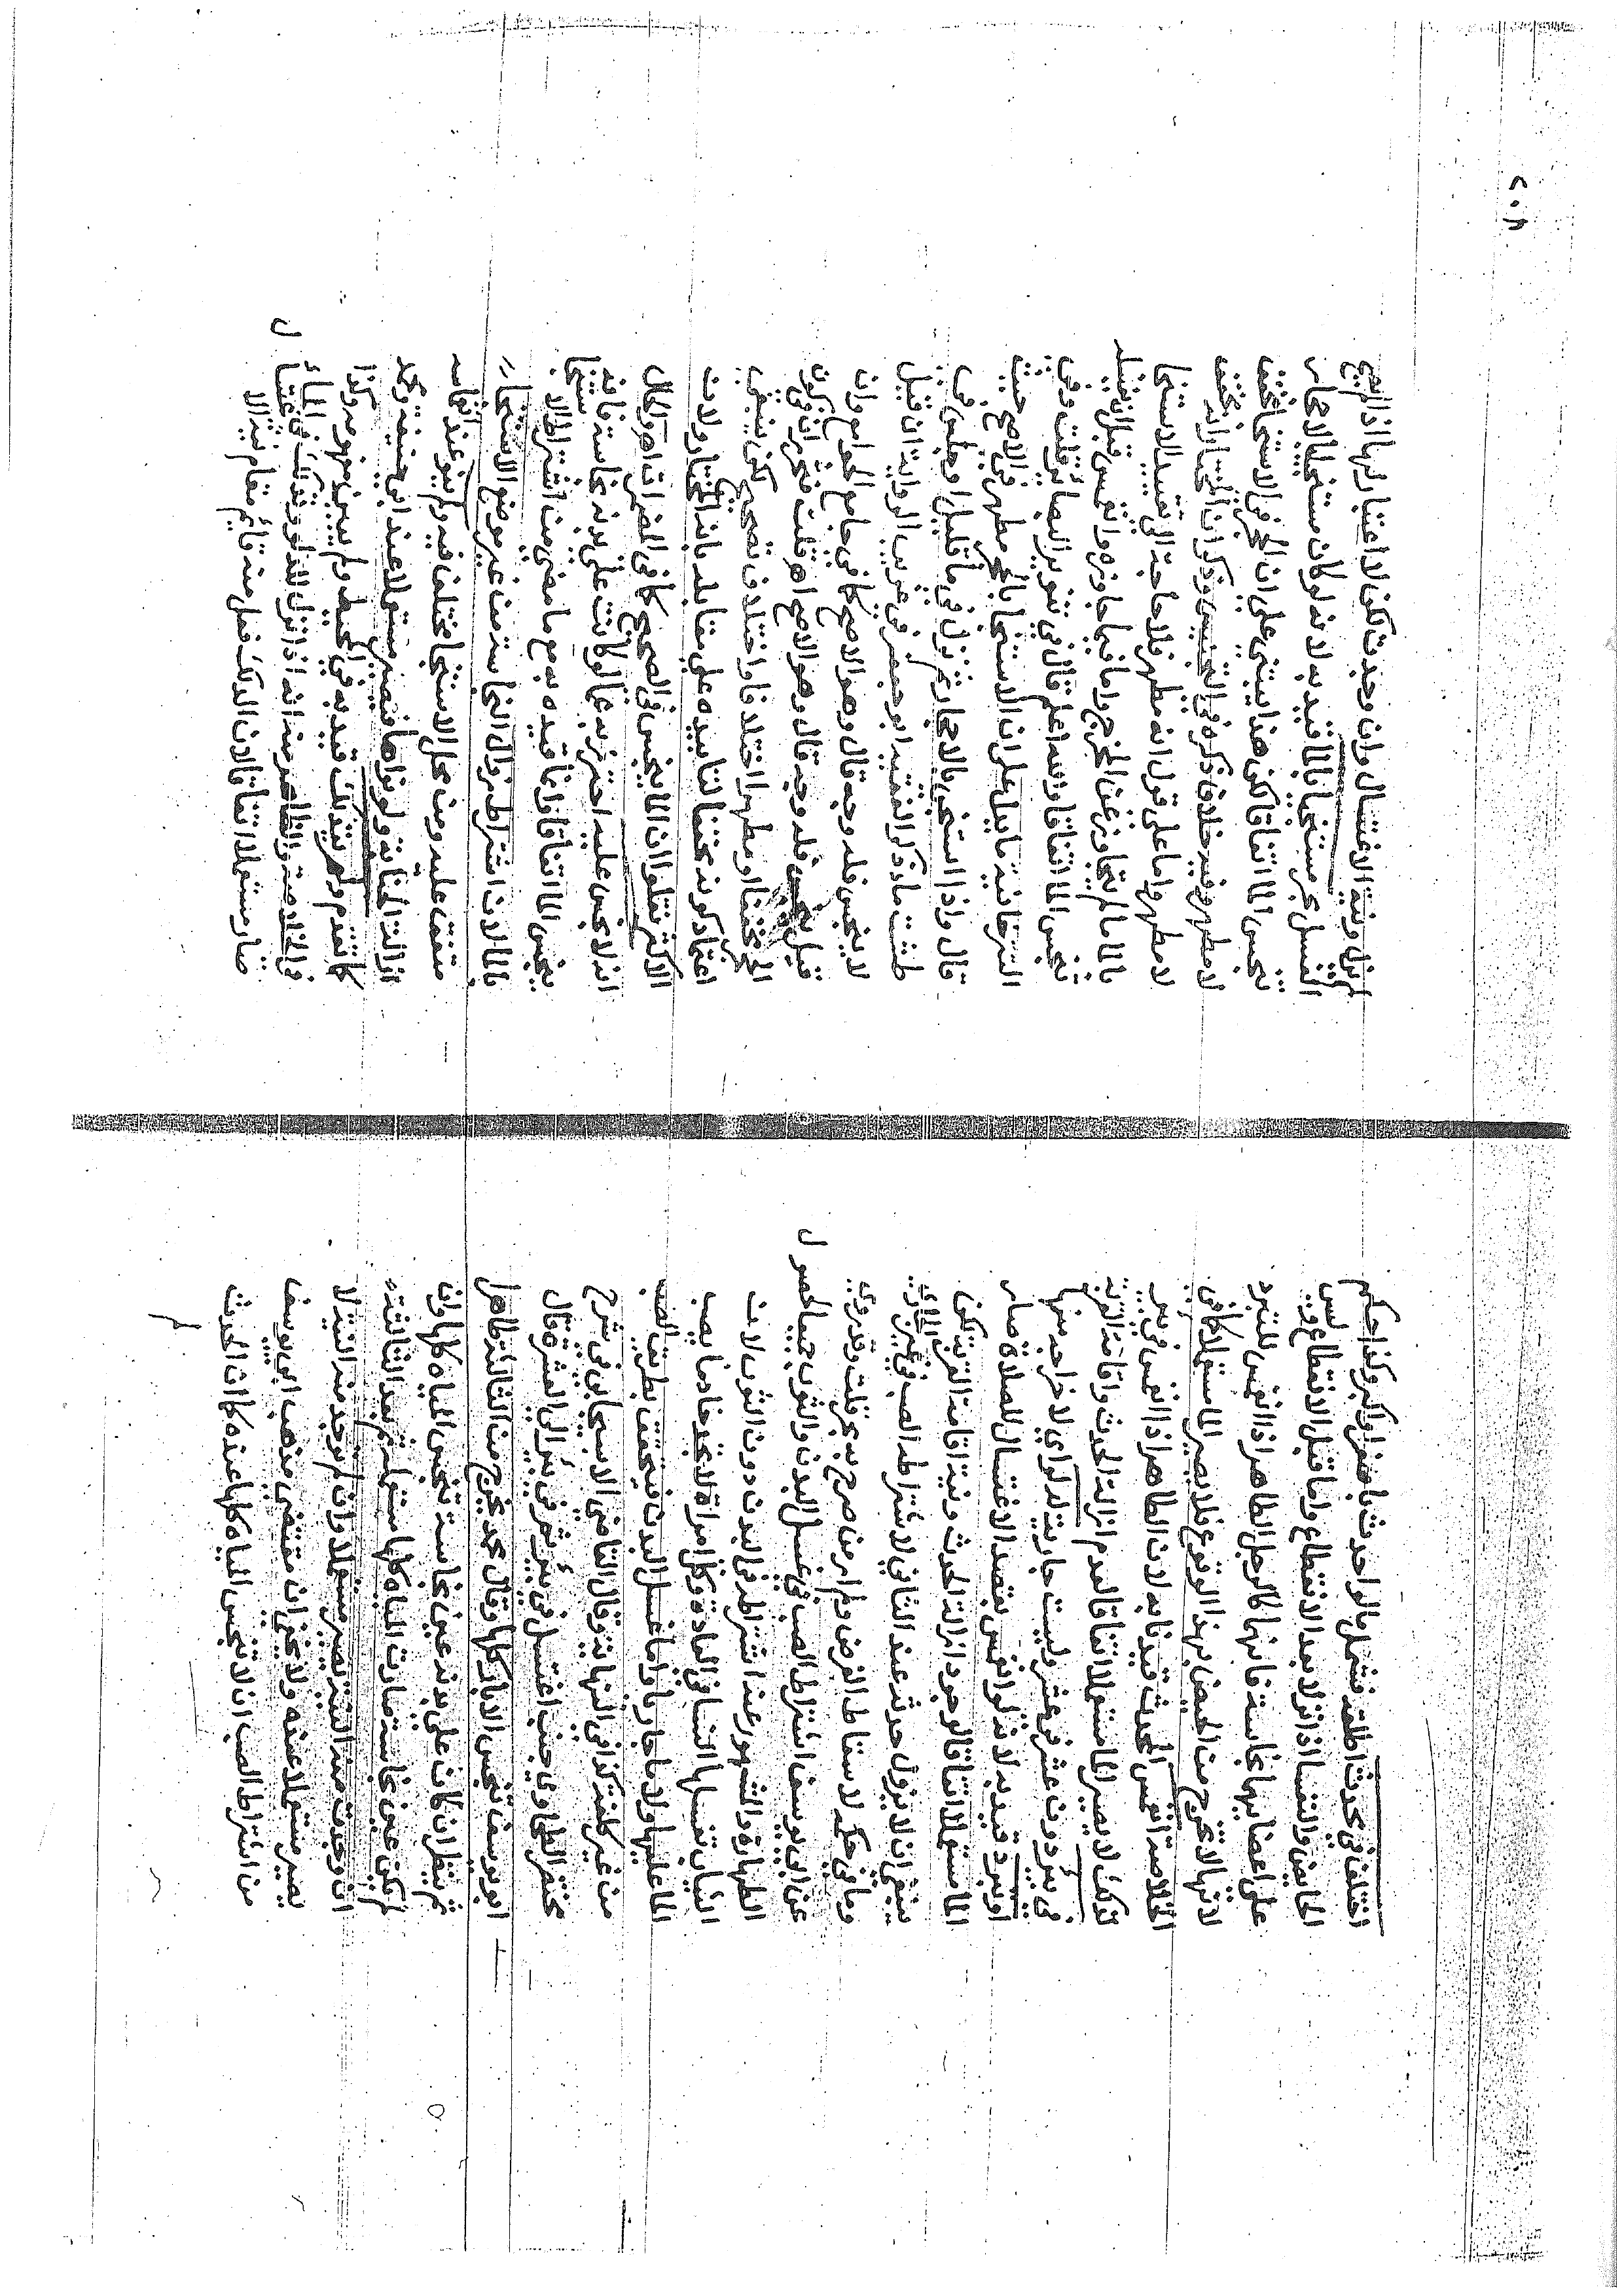 اختلف في محدث اطلقه فشمل مالو احدث باصغر او اكبر وكذا حكم
الحايض والنفسا اذا نزلا بعد الانقطاع واما قبل الانقطاع وليس
على اعضايهما نجاسة فانهما كالرجل الطاهر اذا انغمس للتبرد
لانها لا تخرج من الحيض بهذا الوقوع فلا يصير الما مستعملا كما في
الخلاصة انغمس المحدث قيدنا به لان الطاهر اذا انغمس في بير
لا يصير الما مستعملا اتفاقا لعدم ازالة الحدث واقامة القربة
في بئر دون عشر في عشر وليست جارية لدلو اي لاخراجه منها
او تبرد قيد به لانه لو انغمس بقصد الاغتسال للصلاة صار
الما مستعملا اتفاقا لوجود ازالة الحدث ونية اقامة القربة لكن
ينبغي ان لا يزول حدثه عند الثاني لاشتراطه الصب في غير الجاري
وما في حكمه لاسقاط الفرض ولم ار من صرح به بحر قلت وقد روي
عن ابي يوسف اشتراط الصب في غسل البدن والثوب جميعا لحصول
الطهارة والمشهور عنه اشتراطه في البدن دون الثوب لان
الثياب تغسلها النسا في العادة وكل امراة لا تجد خادما يصب
الما عليها ولا ما جاريا واما غسل البدن فيتحقق بطريق الصب
من غير كلفة كذا في النهاية وقال القاضي الاسبيجابي في شرح
مختصر الطحاوي جنب اغتسل في بئر ثم في بئر الى العشرة قال
ابو يوسف تنجس الابار كلها وقال محمد يخرج من الثالثة طاهرا
ثم ينظر ان كان على بدنه عين نجاسة تنجس المياه كلها وان
لم يكن عين نجاسة صارت المياه كلها مستعملة ثم بعد الثالثة
ان وجدت منه النية يصير مستعملا وان لم يوجد منه النية لا
يصير مستعملا عنده ولا يخفى ان مقتضى مذهب ابي يوسف
من اشتراط الصب ان لا تنجس المياه كلها عنده كان الحدث
لم يزل ونية الاغتسال وان وجدت لكن لا اعتبار لها اذا لم يصح
الغسل بحر مستنجيا بالما قيد به لانه لو كان مستنجيا بالاحجار
تنجس الما اتفاقا لكن هذا يبتني على ان الحجر في الاستنجا مخفف
لا مطهر وفيه خلاف ذكره في التجنيس وذكر ان المختار انه مخفف
لا مطهر واما على قول انه مطهر فلا حاجة الى تقييد الاستنجا
بالما ما لم يتجاوز عن المخرج واما فيما جاوزه وانغمس قبل ان يغسله
تنجس الما اتفاقا والله اعلم قال في تنوير البصاير قلت وفي
التترخانية ما يدل على ان الاستنجا بالحجر مطهر في الاصح حيث
قال واذا استنجى بالاحجار ثم نزل في ما قليل او جلس في
طشت ماء ذكر الفقيه ابو جعفر في غريب الرواية ان قيل
لا ينجس فله وجه قال وهو الاصح كما في جامع الجوامع وان
قيل ينجس فله وجه قال وهو الاصح اهـ قلت فتحرر ان في كون
الحجر مخففا او مطهرا اختلافا واختلاف تصحيح لكن ينبغي
اعتماد كونه مخففا لتاييده على مقابله بانه المختار ولان
الاكثر نقلوا ان الما ينجس في الصحيح كما في المضمرات اهـ والحال
انه لا نجس عليه احترز به عما لو كانت على بدنه نجاسة فانه
ينجس الما اتفاقا وانما قيده به مع ما مضى من اشتراط الاستنجا
بالما لان اشتراط زوال النجاسة من غير موضع الاستنجاء
متفق عليه ومن محل الاستنجا مختلف فيه ولم ينو عند انغماسه
ازالة الجنابة ولو نواها فيصير مستعملا عند ابي حنيفة ومحمد
كما تقدم ولم يتدلك قيد به في المحيط ولم يبين مفهومه وكذا
في الخلاصة والظاهر منه انه اذا نزل للدلو وتدلك في الماء
صار مستعملا اتفاقا لان الدلك فعل منه قايم مقام نية الاغتسال